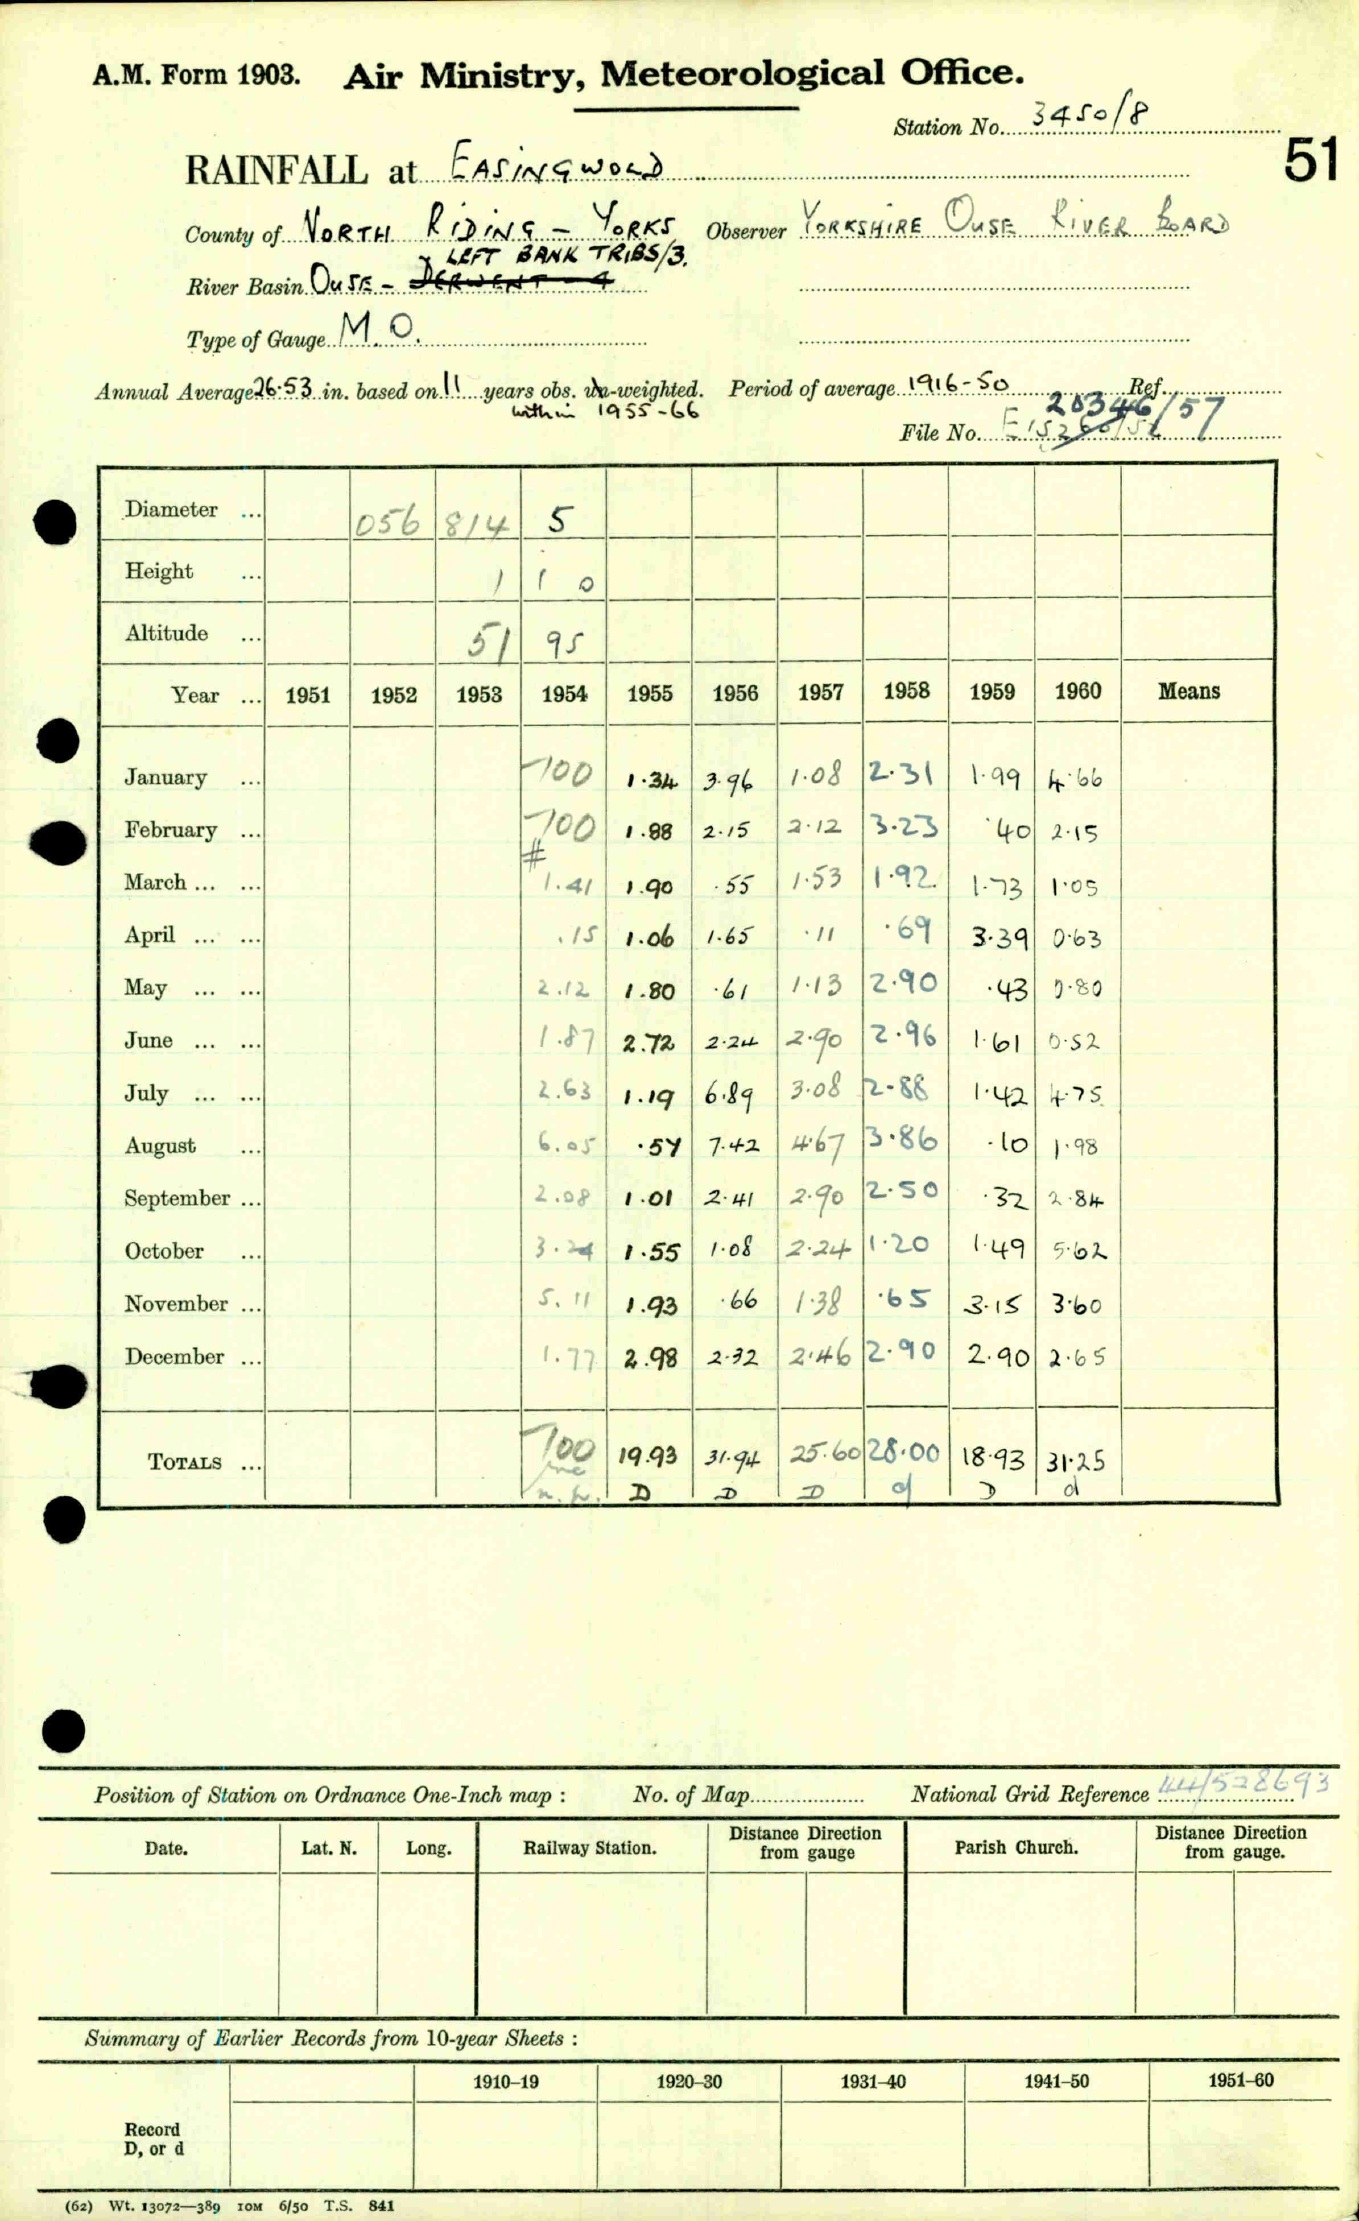 A.M. Form 1903. Air Ministry, Meteorological Office.
Station No. 3450/8
51
RAINFALL at EASINGWOLD
County of NORTH RIDING – YORKS Observer YORKSHIRE OUSE RIVER BOARD
LEFT BANK TRIBS/3.
River Basin OUSE – DERWENT – 4
Type of Gauge M.O.
Annual Average 26·53 in. based on 11 years obs. un-weighted. Period of average 1916-50 Ref.
within 1955-66
20346/57
File No.
Diameter ... 056 814 5
Height ... 1 1 0
Altitude ... 51 95
Year ... 1951 1952 1953 1954 1955 1956 1957 1958 1959 1960 Means
January ... -100 1.34 3.96 1.08 2.31 1.99 4.66
February ... -100 1.88 2.15 2.12 3.23 .40 2.15
#
March ... ... 1.41 1.90 .55 1.53 1.92 1.73 1.05
April ... ... .15 1.06 1.65 .11 .69 3.39 0.63
May ... ... 2.12 1.80 .61 1.13 2.90 .43 0.80
June ... ... 1.87 2.72 2.24 2.90 2.96 1.61 0.52
July ... ... 2.63 1.19 6.89 3.08 2.88 1.42 4.75
August ... 6.05 .57 7.42 4.67 3.86 .10 1.98
September ... 2.08 1.01 2.41 2.90 2.50 .32 2.84
October ... 3.24 1.55 1.08 2.24 1.20 1.49 5.62
November ... 5.11 1.93 .66 1.38 .65 3.15 3.60
December ... 1.77 2.98 2.32 2.46 2.90 2.90 2.65
TOTALS ... -100 19.93 31.94 25.60 28.00 18.93 31.25
D D D d D d
Position of Station on Ordnance One-Inch map : No. of Map National Grid Reference 44/528693
Date. Lat. N. Long. Railway Station. Distance Direction from gauge Parish Church. Distance Direction from gauge.
Summary of Earlier Records from 10-year Sheets :
1910–19 1920–30 1931–40 1941–50 1951–60
Record
D, or d
(62) Wt. 13072—389 10M 6/50 T.S. 841